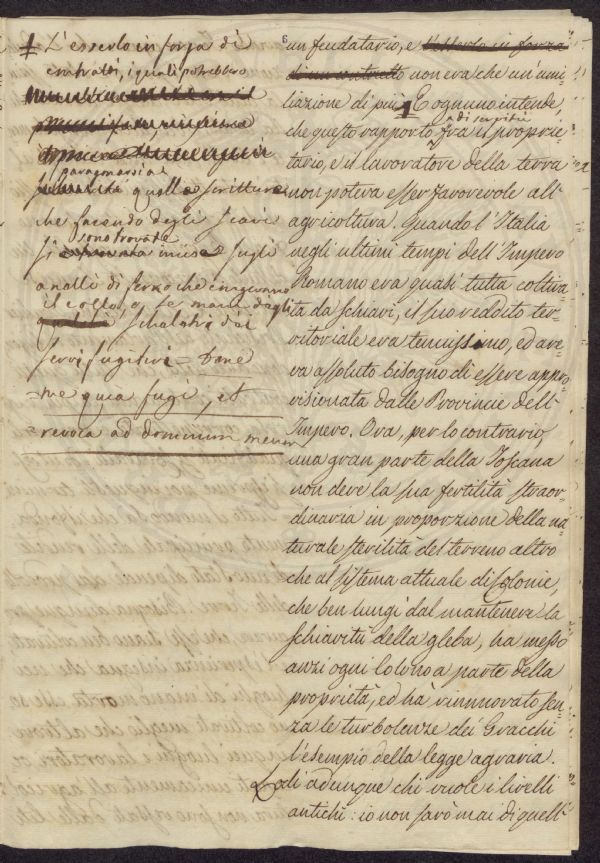 L'esserlo in forza di
contratti, i quali potrebbero
paragonarsi a
quelle scritture
che facendo degli scavi
si sono trovate incise sugli
anelli di ferro che cingevano
il collo, o le mani degli
schiavi, o dei
servi fugitivi = Tene
= me quia fugi, et
= revoca ad dominum meum
6
un feudatario, e l'esserlo in forza
di un contratto non era che un'umi-
liazione di più. E ognuno intende,
di servitù
che questo rapporto fra il proprie-
tario, e il lavoratore della terra
non poteva esser favorevole all'
agricoltura. Quando l'Italia
negli ultimi tempi dell'Impero
Romano era quasi tutta coltiva-
ta da schiavi, il suo reddito ter-
ritoriale era tenuissimo, ed ave-
va assoluto bisogno di essere appro-
visionata dalle Provincie dell'
Impero. Ora, per lo contrario,
una gran parte della Toscana
non deve la sua fertilità straor-
dinaria in proporzione della na-
turale sterilità del terreno altro
che al sistema attuale di Colonie,
che ben lungi dal mantenere la
schiavitù della gleba, ha messo
anzi ogni colono a parte della
proprietà, ed ha rinnuovato sen-
za le turbolenze dei Gracchi
l'esempio della legge agraria.
Lodi adunque chi vuole i livelli
antichi: io non sarò mai di quell'